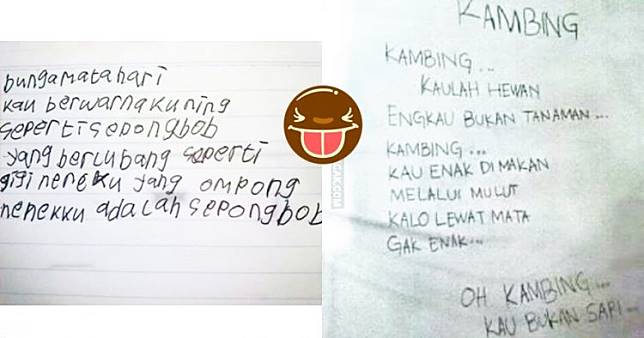 bunga matahari
kau berwarna kuning
seperti sepongbob
yang berlubang seperti
gigi nenekku yang ompong
nenekku adalah sepongbob
KAMBING
KAMBING...
KAULAH HEWAN
ENGKAU BUKAN TANAMAN...
KAMBING...
KAU ENAK DI MAKAN
MELALUI MULUT
KALO LEWAT MATA
GAK ENAK...
OH KAMBING...
KAU BUKAN SAPI...